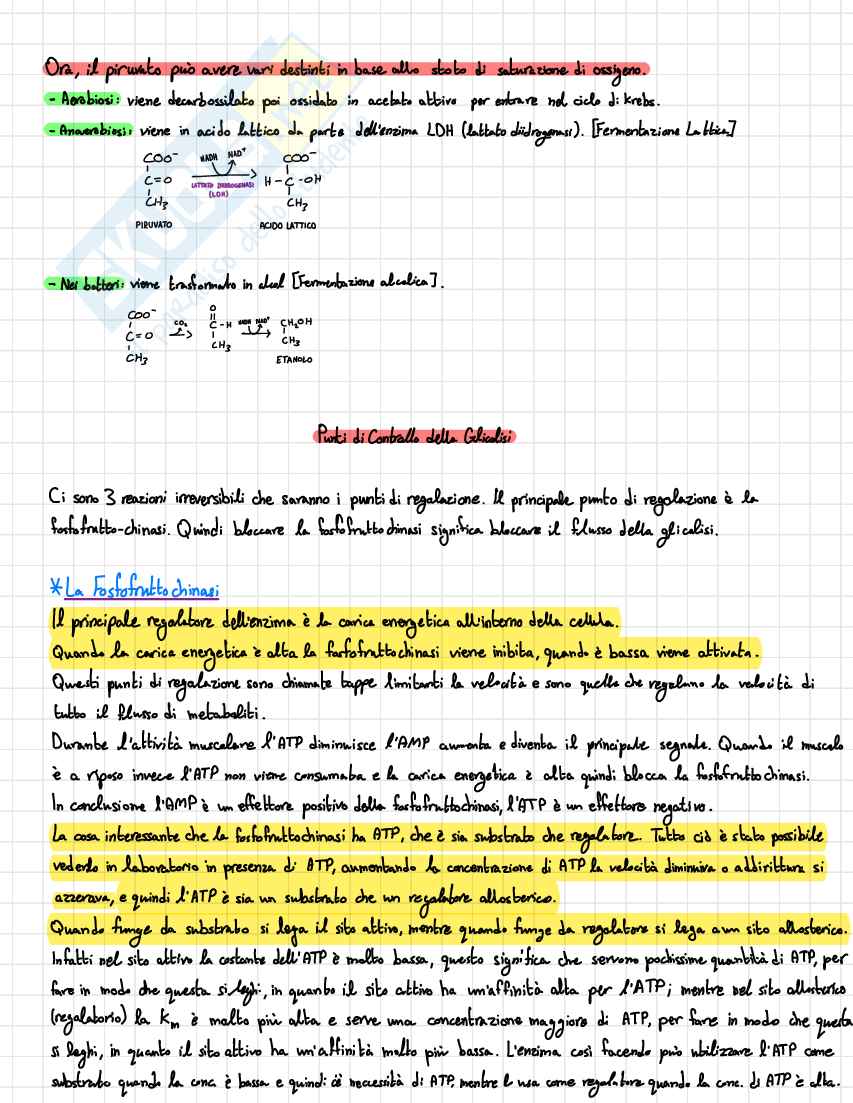 Ora, il piruvato può avere vari destini in base allo stato di saturazione di ossigeno.
- Aerobiosi: viene decarbossilato poi ossidato in acetato attivo per entrare nel ciclo di Krebs.
- Anaerobiosi: viene in acido lattico da parte dell'enzima LDH (lattato diidrogenasi). [Fermentazione Lattica]
COO⁻ NADH NAD⁺ COO⁻
C=O LATTATO DIIDROGENASI H-C-OH
(LDH)
CH₃ CH₃
PIRUVATO ACIDO LATTICO
- Nei batteri: viene trasformato in alcol [Fermentazione alcolica].
COO⁻ O
C=O CO₂ C-H NADH NAD⁺ CH₂OH
CH₃ CH₃ CH₃
ETANOLO
Punti di Controllo della Glicolisi
Ci sono 3 reazioni irreversibili che saranno i punti di regolazione. Il principale punto di regolazione è la
fosfofrutto-chinasi. Quindi bloccare la fosfofruttochinasi significa bloccare il flusso della glicolisi.
*La Fosfofruttochinasi
Il principale regolatore dell'enzima è la carica energetica all'interno della cellula.
Quando la carica energetica è alta la fosfofruttochinasi viene inibita, quando è bassa viene attivata.
Questi punti di regolazione sono chiamate tappe limitanti la velocità e sono quelle che regolano la velocità di
tutto il flusso di metaboliti.
Durante l'attività muscolare l'ATP diminuisce l'AMP aumenta e diventa il principale segnale. Quando il muscolo
è a riposo invece l'ATP non viene consumata e la carica energetica è alta quindi blocca la fosfofruttochinasi.
In conclusione l'AMP è un effettore positivo della fosfofruttochinasi, l'ATP è un effettore negativo.
La cosa interessante che la fosfofruttochinasi ha ATP, che è sia substrato che regolatore. Tutto ciò è stato possibile
vederlo in laboratorio in presenza di ATP, aumentando la concentrazione di ATP la velocità diminuiva o addirittura si
azzerava, e quindi l'ATP è sia un substrato che un regolatore allosterico.
Quando funge da substrato si lega il sito attivo, mentre quando funge da regolatore si lega a un sito allosterico.
Infatti nel sito attivo la costante dell'ATP è molto bassa, questo significa che servono pochissime quantità di ATP, per
fare in modo che questa si leghi, in quanto il sito attivo ha un'affinità alta per l'ATP; mentre nel sito allosterico
(regolatorio) la Km è molto più alta e serve una concentrazione maggiore di ATP, per fare in modo che questa
si leghi, in quanto il sito attivo ha un'affinità molto più bassa. L'enzima così facendo può utilizzare l'ATP come
substrato quando la conc. è bassa e quindi c'è necessità di ATP, mentre lo usa come regolatore quando la conc. di ATP è alta.